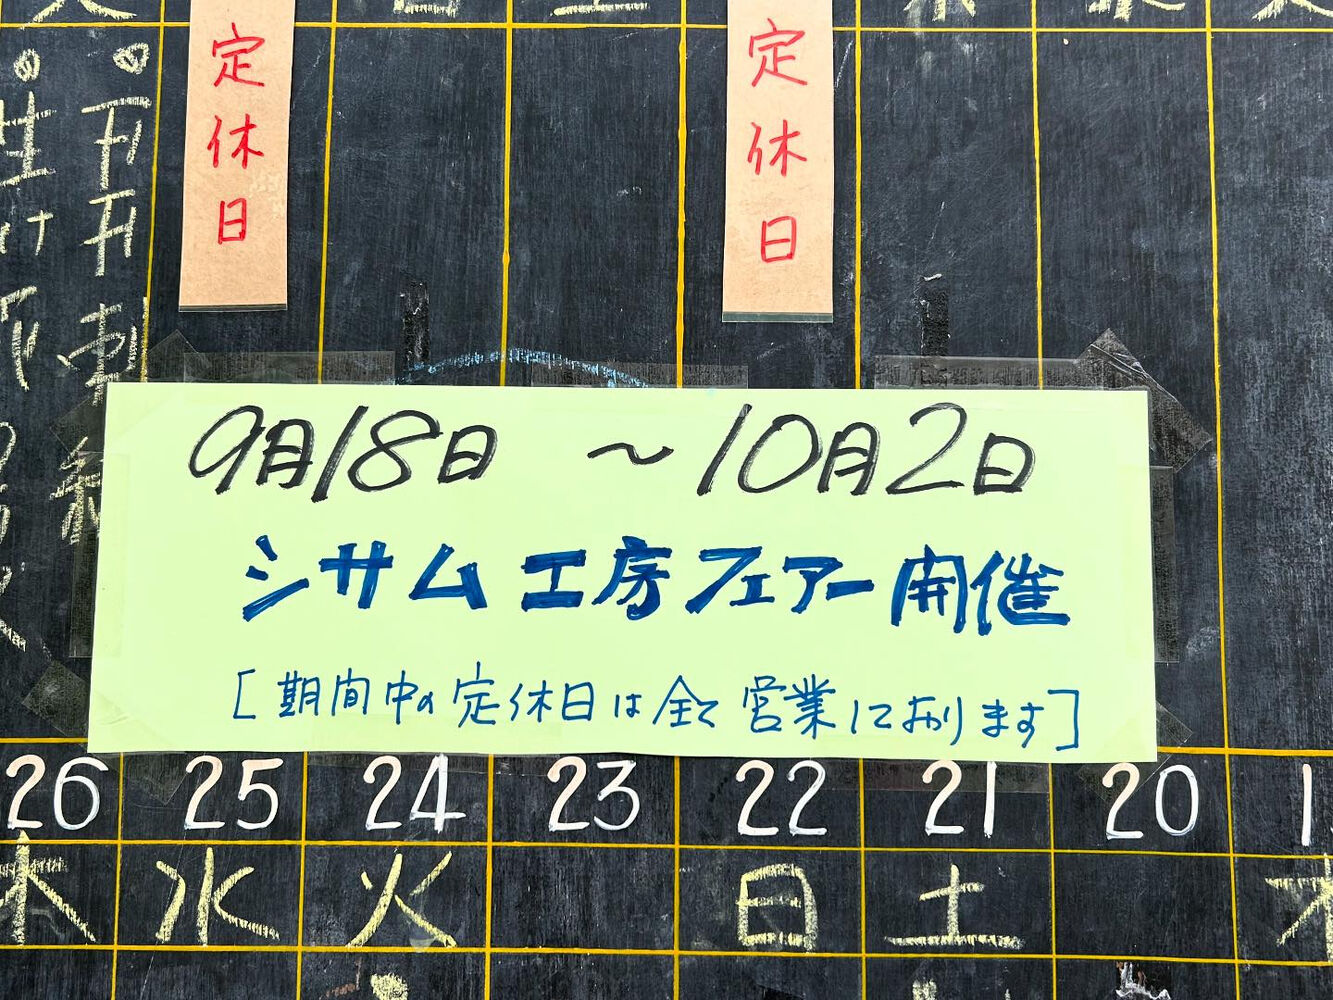 定休日
定休日
9月18日 ～10月2日
シサム工房フェアー開催
[期間中の定休日は全て営業しております]
26 25 24 23 22 21 20
木 水 火 日 土